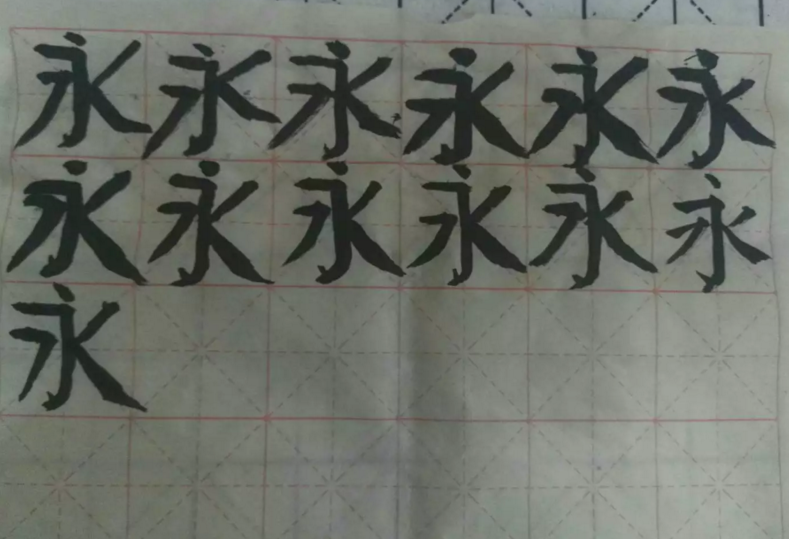 永永永永永永
永永永永永永
永